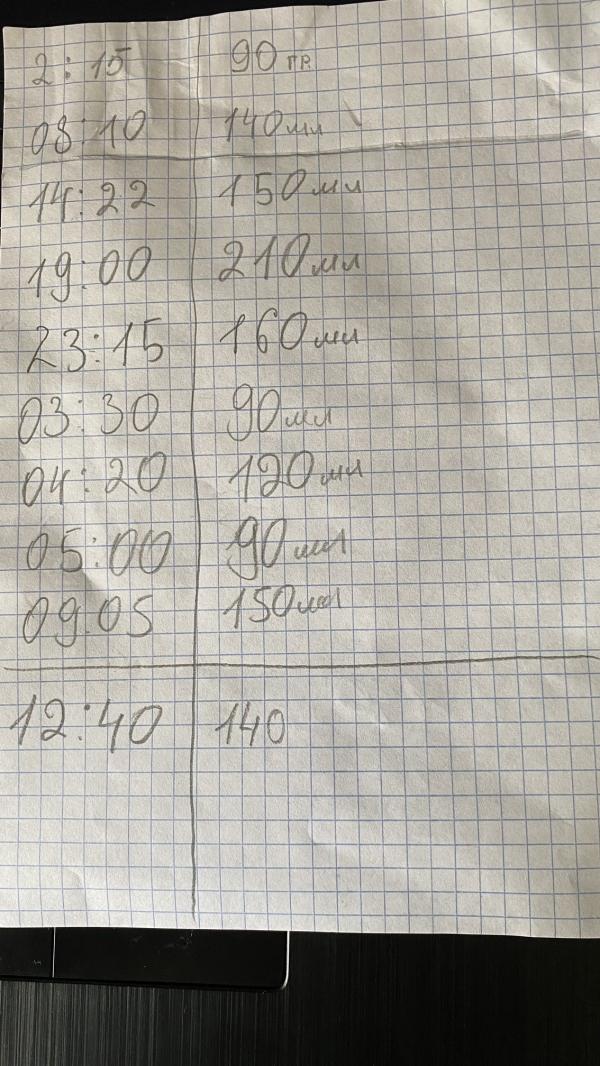 2:15 90 гр
08:10 140мл
14:22 150мл
19:00 210мл
23:15 160мл
03:30 90мл
04:20 120мл
05:00 90мл
09:05 150мл
12:40 140